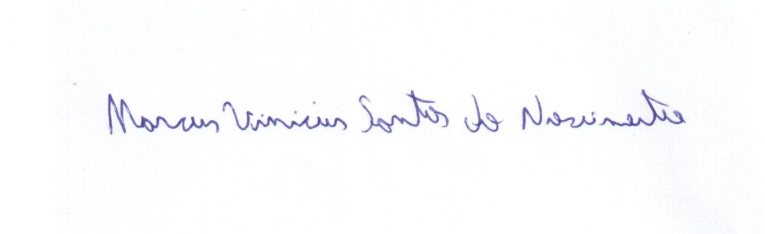 Marcus Vinicius Santos do Nascimento